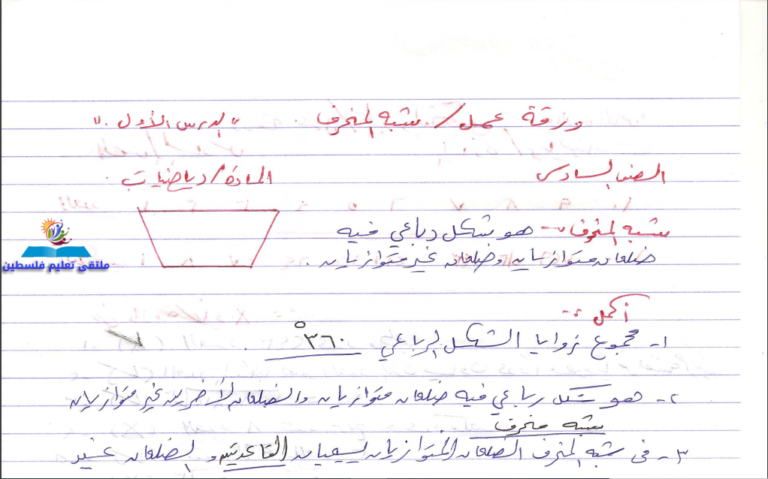 ورقة عمل / شبه المنحرف " الدرس الأول "
الصف السادس المادة / رياضيات
شبه المنحرف :- هو شكل رباعي فيه
ضلعان متوازيان وضلعان غير متوازيان .
ملتقى تعليم فلسطين
أكمل :-
١- مجموع زوايا الشكل الرباعي ٣٦٠°
٢- هو شكل رباعي فيه ضلعان متوازيان والضلعان الأخريين غير متوازيان
شبه منحرف
٣- في شبه المنحرف الضلعان المتوازيان يسميان القاعدتين والضلعان غير